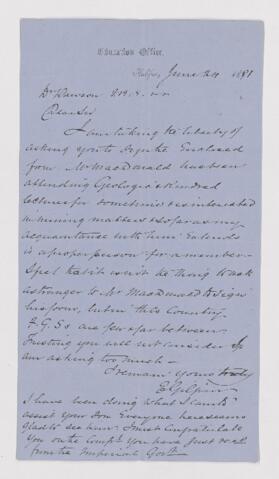 Education Office,
Halifax, June 24 1881
Dr Dawson F.R.S. &c
Dear Sir
I am taking the liberty of
asking you to sign the Enclosed
form Mr MacDonald has been
attending Geological & kindred
lectures for sometime & is interested
in mining matters & so far as my
acquaintance with him Extends
is a proper person for a member-
I feel that it isn't the thing to ask
a stranger to Mr MacDonald to sign
his form, but in this Country
F.G.S.s are few & far between.
Trusting you will not consider I
am asking too much -
I remain yours truly
E Gilpin
I have been doing what I can to
assist your Son Everyone here seems
glad to see him. I must Congratulate
you on the Compt you have just recd
from the Imperial Govt